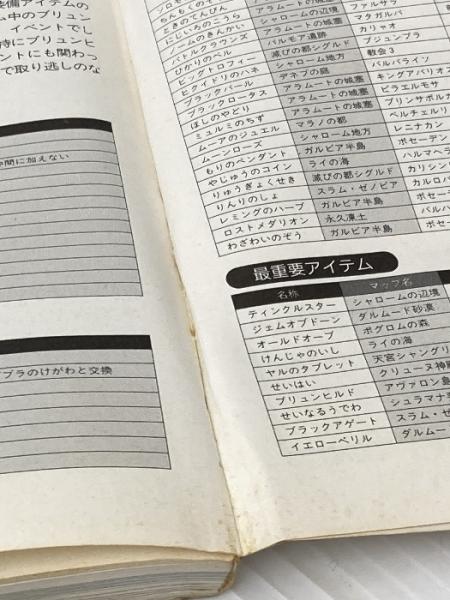 装備アイテムの
ム中のブリュン
イベントでし
特にブリュンヒ
ントにも関わっ
で取り逃しのな
仲間に加えない
ブラのけがわと交換
ちんもくのオノ
ときのてんびん シャロームの辺境 マクガルパ
アラムートの城塞 カリャオ
バトルクラウンズ バルモア遺跡 プジュンプラ
ひかりのベル 滅びの都シグルド 教会3
ビッグトロフィー シャローム地方 バルパライソ
ヒクイドリのハネ デネブの庭 キングアバリオン
ブラックパール アラムートの城塞 ピラエルモサ
ブラックロータス アラムートの城塞
ほしのやどり アラムートの城塞
ミュルミのちず マラノの都 レニナカン
ムーアのジュエル シャローム地方
ムーンローズ ガルビア半島
もりのペンダント ライの海
やじゅうのコイン 滅びの都シグルド
りゅうぎょくせき スラム・ゼノビア
りんりのしょ ガルビア半島
レミングのハーブ 永久凍土
ロストメダリオン ガルビア半島
わざわいのぞう
最重要アイテム
名称 マップ名
ティンクルスター シャロームの辺境
ジェムオブドーン ダルムード砂漠
オールドオーブ ポグロムの森
けんじゃのいし ライの海
ヤルのタブレット 天宮シャングリ
せいはい クリューヌ神殿
ブリュンヒルド アヴァロン島
せいなるうでわ シュラマナ
ブラックアゲート スラム・ゼ
イエローベリル ダルムー